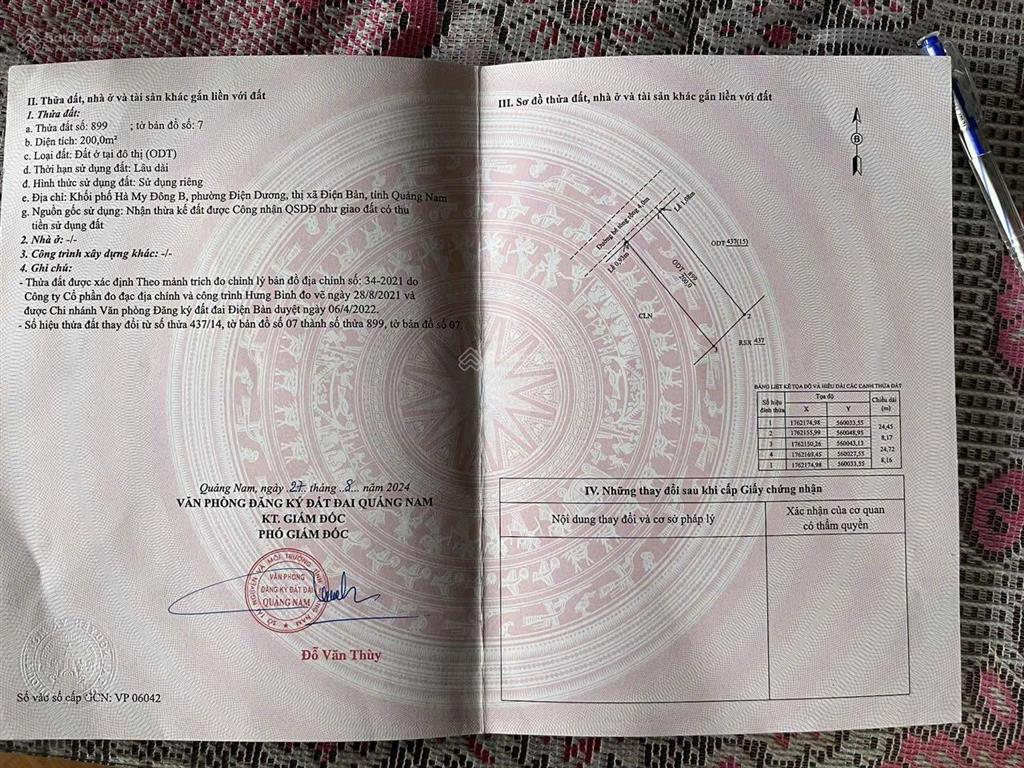 Batdongsan
II. Thửa đất, nhà ở và tài sản khác gắn liền với đất
1. Thửa đất:
a. Thửa đất số: 899 ; tờ bản đồ số: 7
b. Diện tích: 200,0m²
c. Loại đất: Đất ở tại đô thị (ODT)
d. Thời hạn sử dụng đất: Lâu dài
đ. Hình thức sử dụng đất: Sử dụng riêng
e. Địa chỉ: Khối phố Hà My Đông B, phường Điện Dương, thị xã Điện Bàn, tỉnh Quảng Nam
g. Nguồn gốc sử dụng: Nhận thừa kế đất được Công nhận QSDĐ như giao đất có thu
tiền sử dụng đất
2. Nhà ở: -/-
3. Công trình xây dựng khác: -/-
4. Ghi chú:
- Thửa đất được xác định Theo mảnh trích đo chỉnh lý bản đồ địa chính số: 34-2021 do
Công ty Cổ phần đo đạc địa chính và công trình Hưng Bình đo vẽ ngày 28/8/2021 và
được Chi nhánh Văn phòng Đăng ký đất đai Điện Bàn duyệt ngày 06/4/2022.
- Số hiệu thửa đất thay đổi từ số thửa 437/14, tờ bản đồ số 07 thành số thửa 899, tờ bản đồ số 07.
Quảng Nam, ngày 27 tháng 8 năm 2024
VĂN PHÒNG ĐĂNG KÝ ĐẤT ĐAI QUẢNG NAM
KT. GIÁM ĐỐC
PHÓ GIÁM ĐỐC
VĂN PHÒNG
ĐĂNG KÝ ĐẤT ĐAI
QUẢNG NAM
Đỗ Văn Thùy
Số vào sổ cấp GCN: VP 06042
III. Sơ đồ thửa đất, nhà ở và tài sản khác gắn liền với đất
B
Đường bê tông rộng 4.0m
Lề 1,08m
Lề 0,93m
ODT 437(15)
ODT 899
200,0
CLN
2
3
RSX 437
BẢNG LIỆT KÊ TỌA ĐỘ VÀ HIỀU DÀI CÁC CẠNH THỬA ĐẤT
Số hiệu đỉnh thửa Tọa độ Chiều dài (m)
X Y
1 1762174,98 560033,55
24,45
2 1762155,99 560048,95
8,17
3 1762150,26 560043,13
24,72
4 1762169,45 560027,55
8,16
1 1762174,98 560033,55
IV. Những thay đổi sau khi cấp Giấy chứng nhận
Nội dung thay đổi và cơ sở pháp lý
Xác nhận của cơ quan
có thẩm quyền